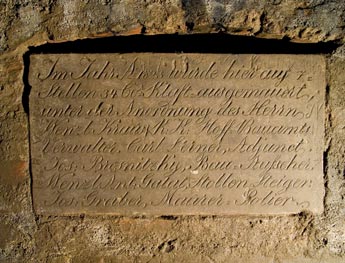 Im Jahr wurde hier auf
Stollen Klaft. ausgemauert,
unter der Anordnung des Herrn
Wenzl Kraus k.k. Hoff Bauamts
Verwalter, Carl Lerner, Adjunct,
Jos. Bresnitzky, Bau
Wenzl Ant. Stollen Steiger,
Jos. Greiber, Maurer Polier.